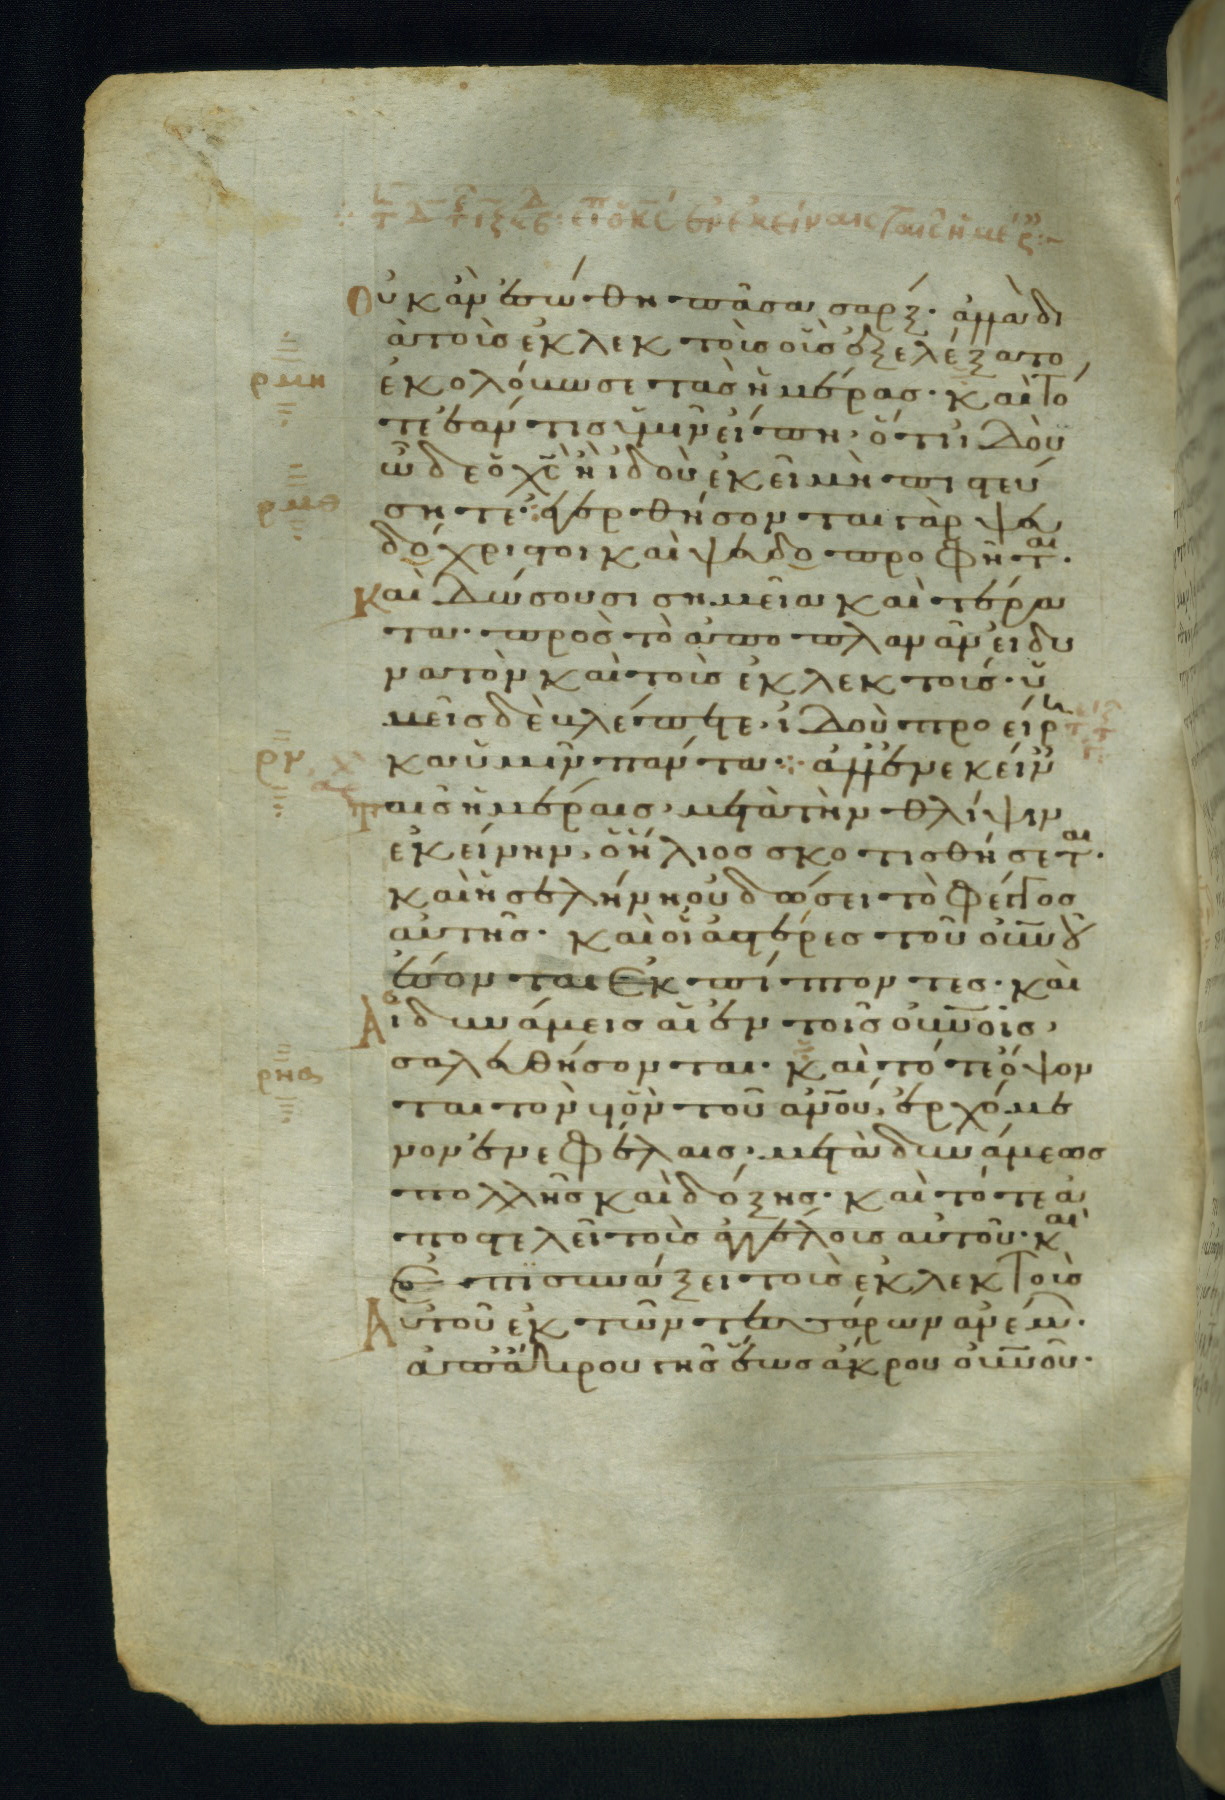 Οὐκ ἂν ἐσώθη πᾶσα σάρξ· ἀλλὰ δι
ὰ τοὺς ἐκλεκτοὺς οὓς ἐξελέξατο,
ρμη ἐκολόβωσε τὰς ἡμέρας· καὶ τό
τε ἐάν τις ὑμῖν εἴπῃ· ὅτι ἰδοὺ
ὧδε ὁ χς̄ ἢ ἰδοὺ ἐκεῖ μὴ πιστεύ
ρμθ σητε· ἐγερθήσονται γὰρ ψευ
δόχριστοι καὶ ψευδοπροφῆται·
Καὶ δώσουσι σημεῖα καὶ τέρα
τα· πρὸς τὸ ἀποπλανᾶν εἰ δυ
νατὸν καὶ τοὺς ἐκλεκτούς· ὑ
μεῖς δὲ βλέπετε· ἰδοὺ προείρη
ρν κα ὑμῖν πάντα· ἀλλ' ἐν ἐκείν
ταις ἡμέραις, μετὰ τὴν θλίψιν
ἐκείνην, ὁ ἥλιος σκοτισθήσεται·
καὶ ἡ σελήνη οὐ δώσει τὸ φέγγος
αὐτῆς· καὶ οἱ ἀστέρες τοῦ οὐνου
ἔσονται ἐκπίπτοντες· καὶ
Αἱ δυνάμεις αἱ ἐν τοῖς οὐνοῖς,
ρνα σαλευθήσονται· καὶ τότε ὄψον
ται τὸν υἱὸν τοῦ ἀνου, ἐρχόμε
νον ἐν νεφέλαις, μετὰ δυνάμεως
πολλῆς καὶ δόξης· καὶ τότε ἀ
ποστελεῖ τοὺς ἀγγέλους αὐτοῦ· καὶ
ἐπισυνάξει τοὺς ἐκλεκτοὺς
Αὐτοῦ ἐκ τῶν τεσσάρων ἀνέμ·
ἀπὸ ἄκρου γῆς ἕως ἄκρου οὐνου·